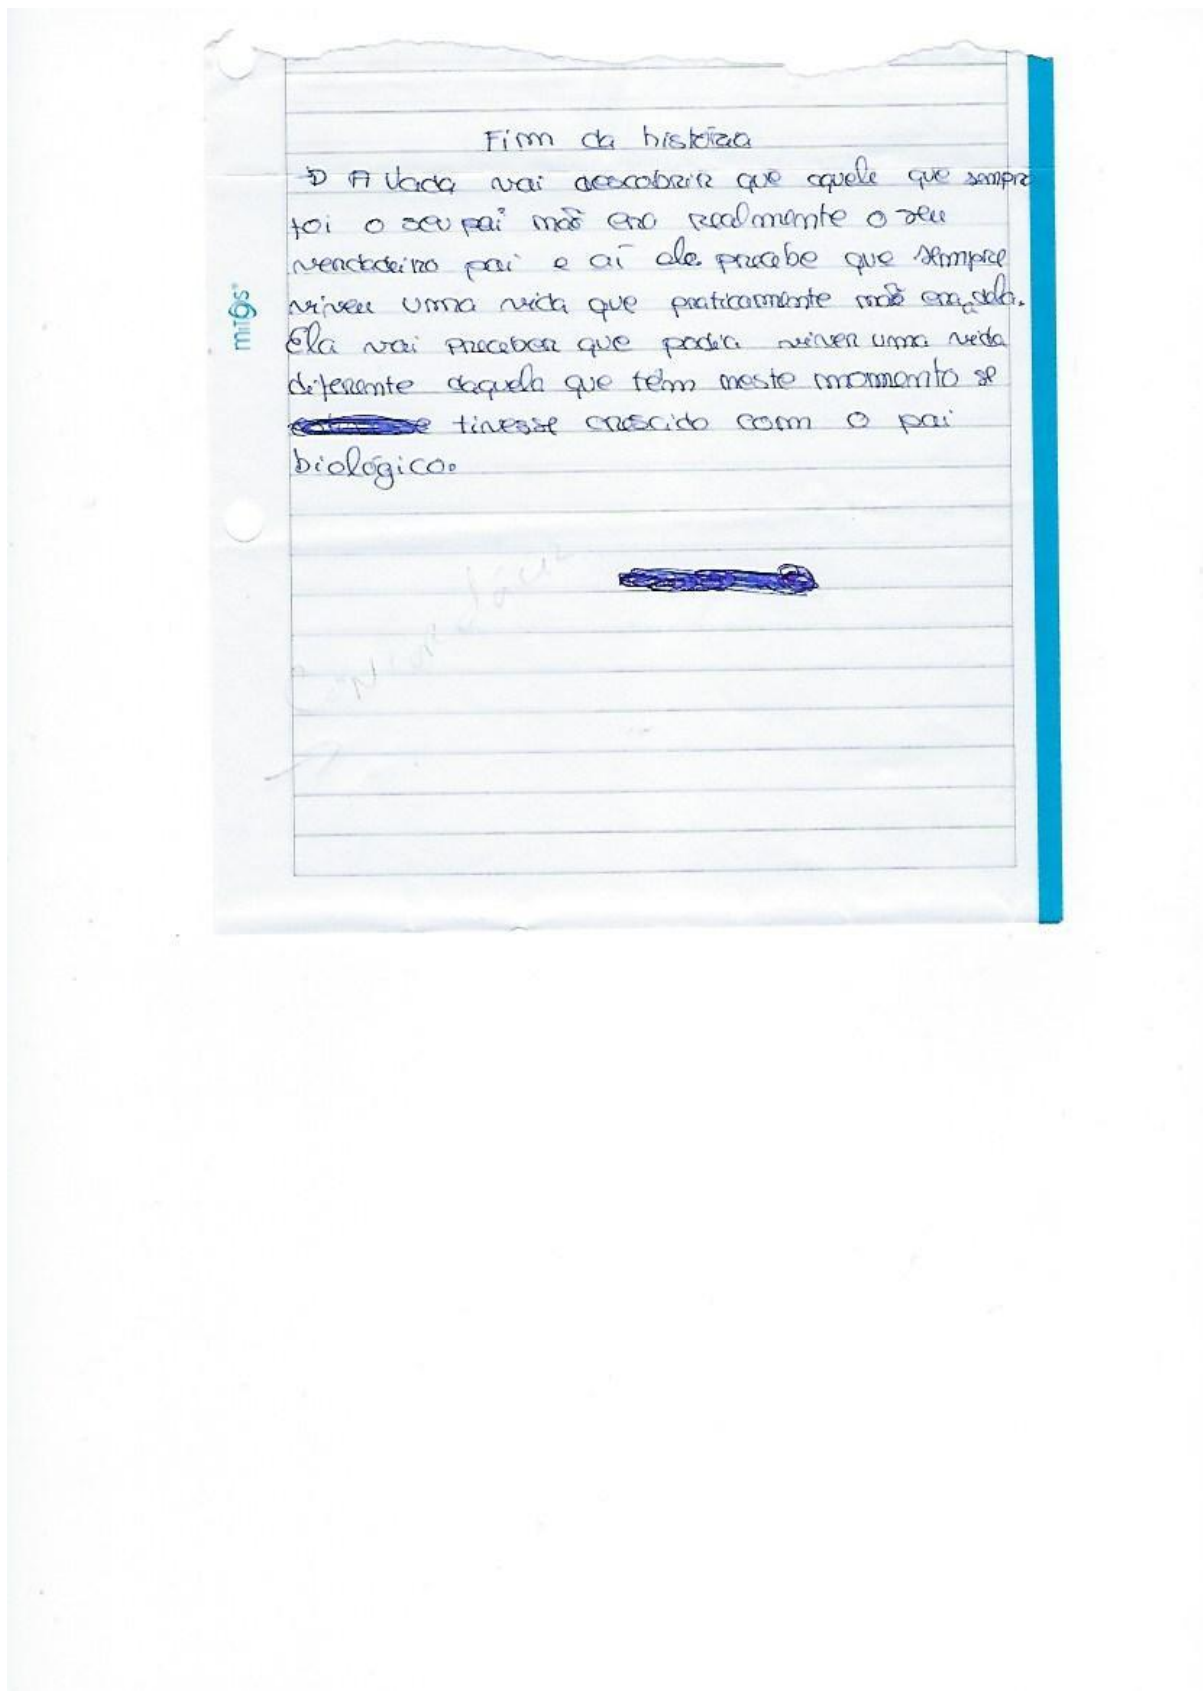 Fim da história
A Vada vai descobrir que aquele que sempre
foi o seu pai não era realmente o seu
verdadeiro pai e aí ela precebe que sempre
viveu uma vida que praticamente não era a dela.
Ela vai preceber que podia viver uma vida
diferente daquela que têm neste momento se
tivesse crescido com o pai
biológico.
mitos